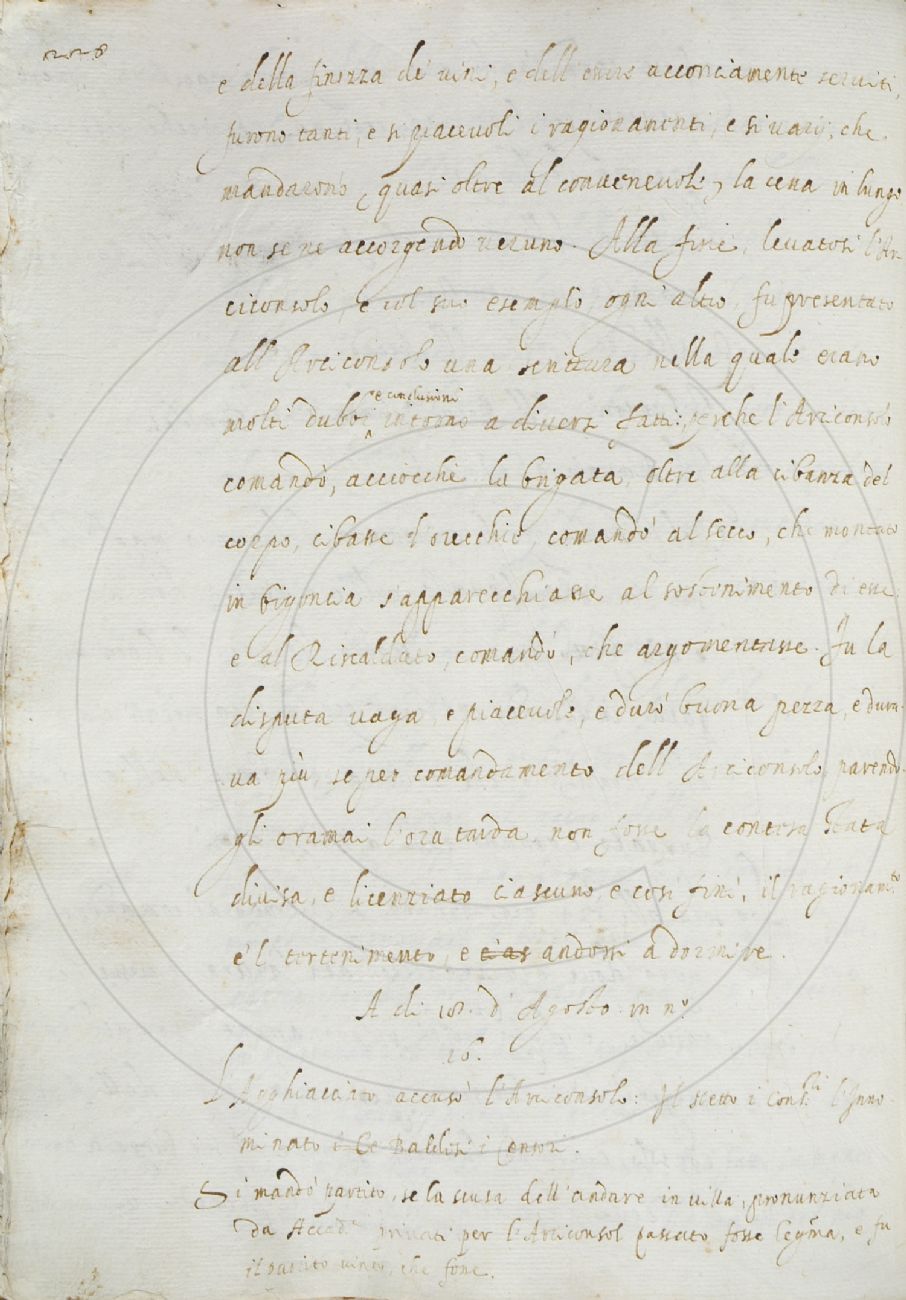 228
e della finezza de' vini, e dell'essere acconciamente serviti,
furono tanti, e si piacevoli i ragionamenti, e si varij, che
mandarono, quasi oltre al convenevole, la cena in lungo
non se ne accorgendo veruno. Alla fine, levatosi l'Ar-
ciconsolo, e col suo esemplo, ogni altro, fu presentato
all'Arciconsolo una scrittura nella quale erano
molti dubbi e conclusioni intorno a diversi fatti: perche l'Arciconsolo
comandò, acciocchè la brigata, oltre alla cibanza del
corpo, cibasse l'orecchie, comandò al secco, che montato
in bigoncia s'apparecchiasse al sostenimento di esse,
e al Riscaldato, comandò, che argomentasse. Fu la
disputa vaga, e piacevole, e durò buona pezza, e dura-
va più, se per comandamento dell'Arciconsolo, parendo-
gli oramai l'ora tarda, non fosse la contesa stata
divisa, e licenziato ciascuno, e così finì, il ragionam.to
e 'l trattenimento, e andossi a dormire.
A di 18. d'Agosto in n.o
16.
L'Agghiacciato accusò l'Arciconsolo: Il scetto i Cons.ri l'Inno-
minato i Censori.
Si mandò partito, se la scusa dell'andare in villa, pronunziata
da Accad.i privati per l'Arciconsol passato fosse leg.ma, e fu
il partito vinto, che fosse.